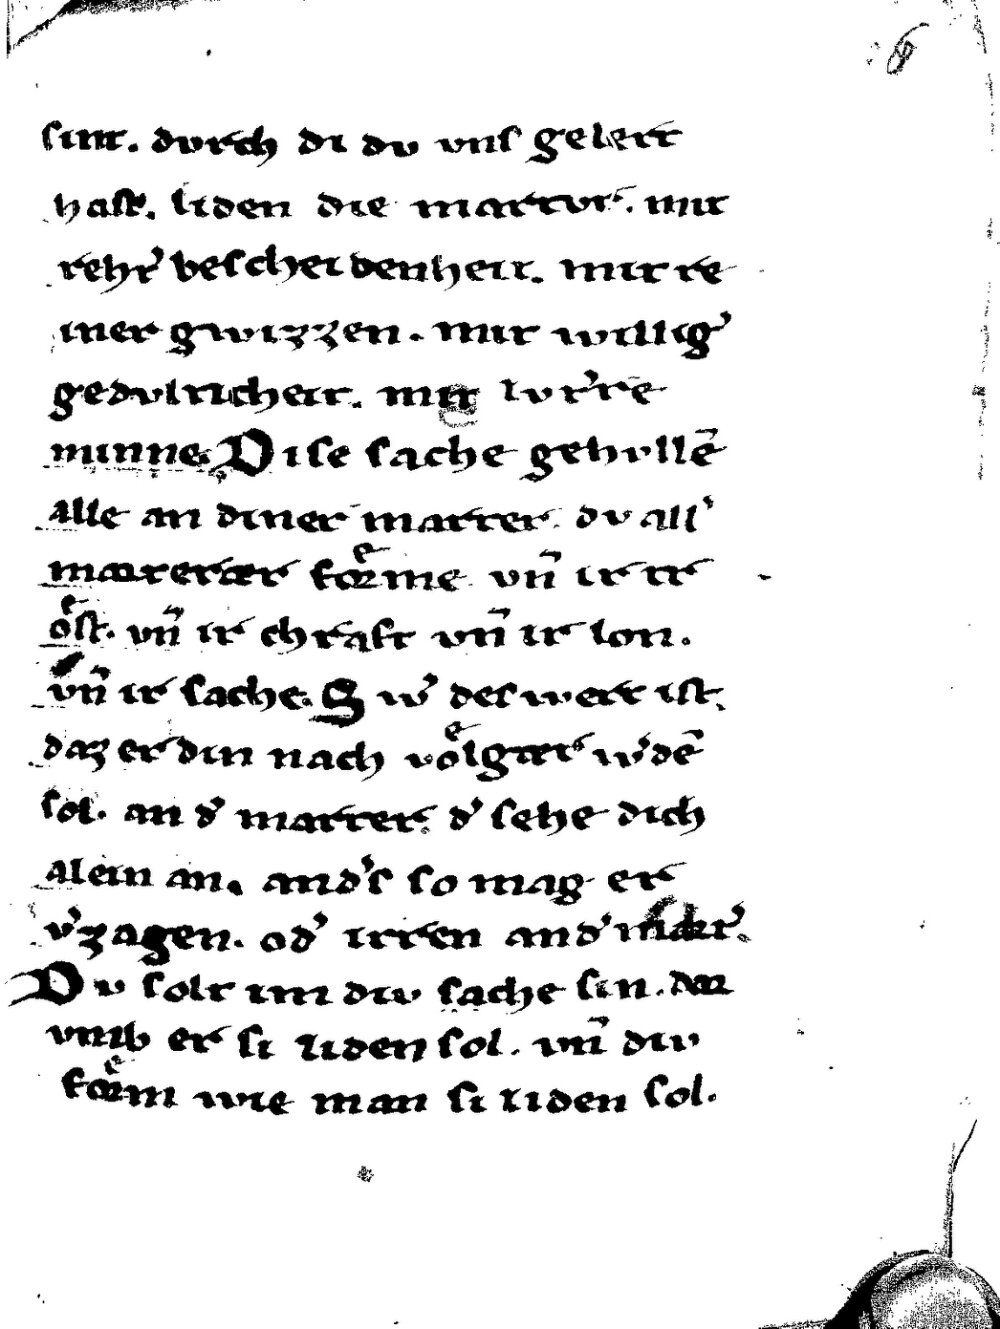 sint. durch di du uns geleit
hast. liden die martur. mit
rehtˀ bescheidenheit. mit re
iner gwizzen. mit willigˀ
gedulticheit. mit lutˀre
minne. Dise sache gehullē
alle an diner marter. du allˀ
marterær foͤrme vn̄ ir tr
oͤst. vn̄ ir chraft vn̄ ir lon.
vn̄ ir sache. Swˀ des wert ist.
daz er din nach voͤlgær wˀdē
sol. an dˀ marter. dˀ sehe dich
alein an. andˀs so mag er
vˀzagen. odˀ irren an dˀ martˀ.
Du solt im diu sache sin. dar
umb er si liden sol. vn̄ diu
foͤrm wie man si liden sol.